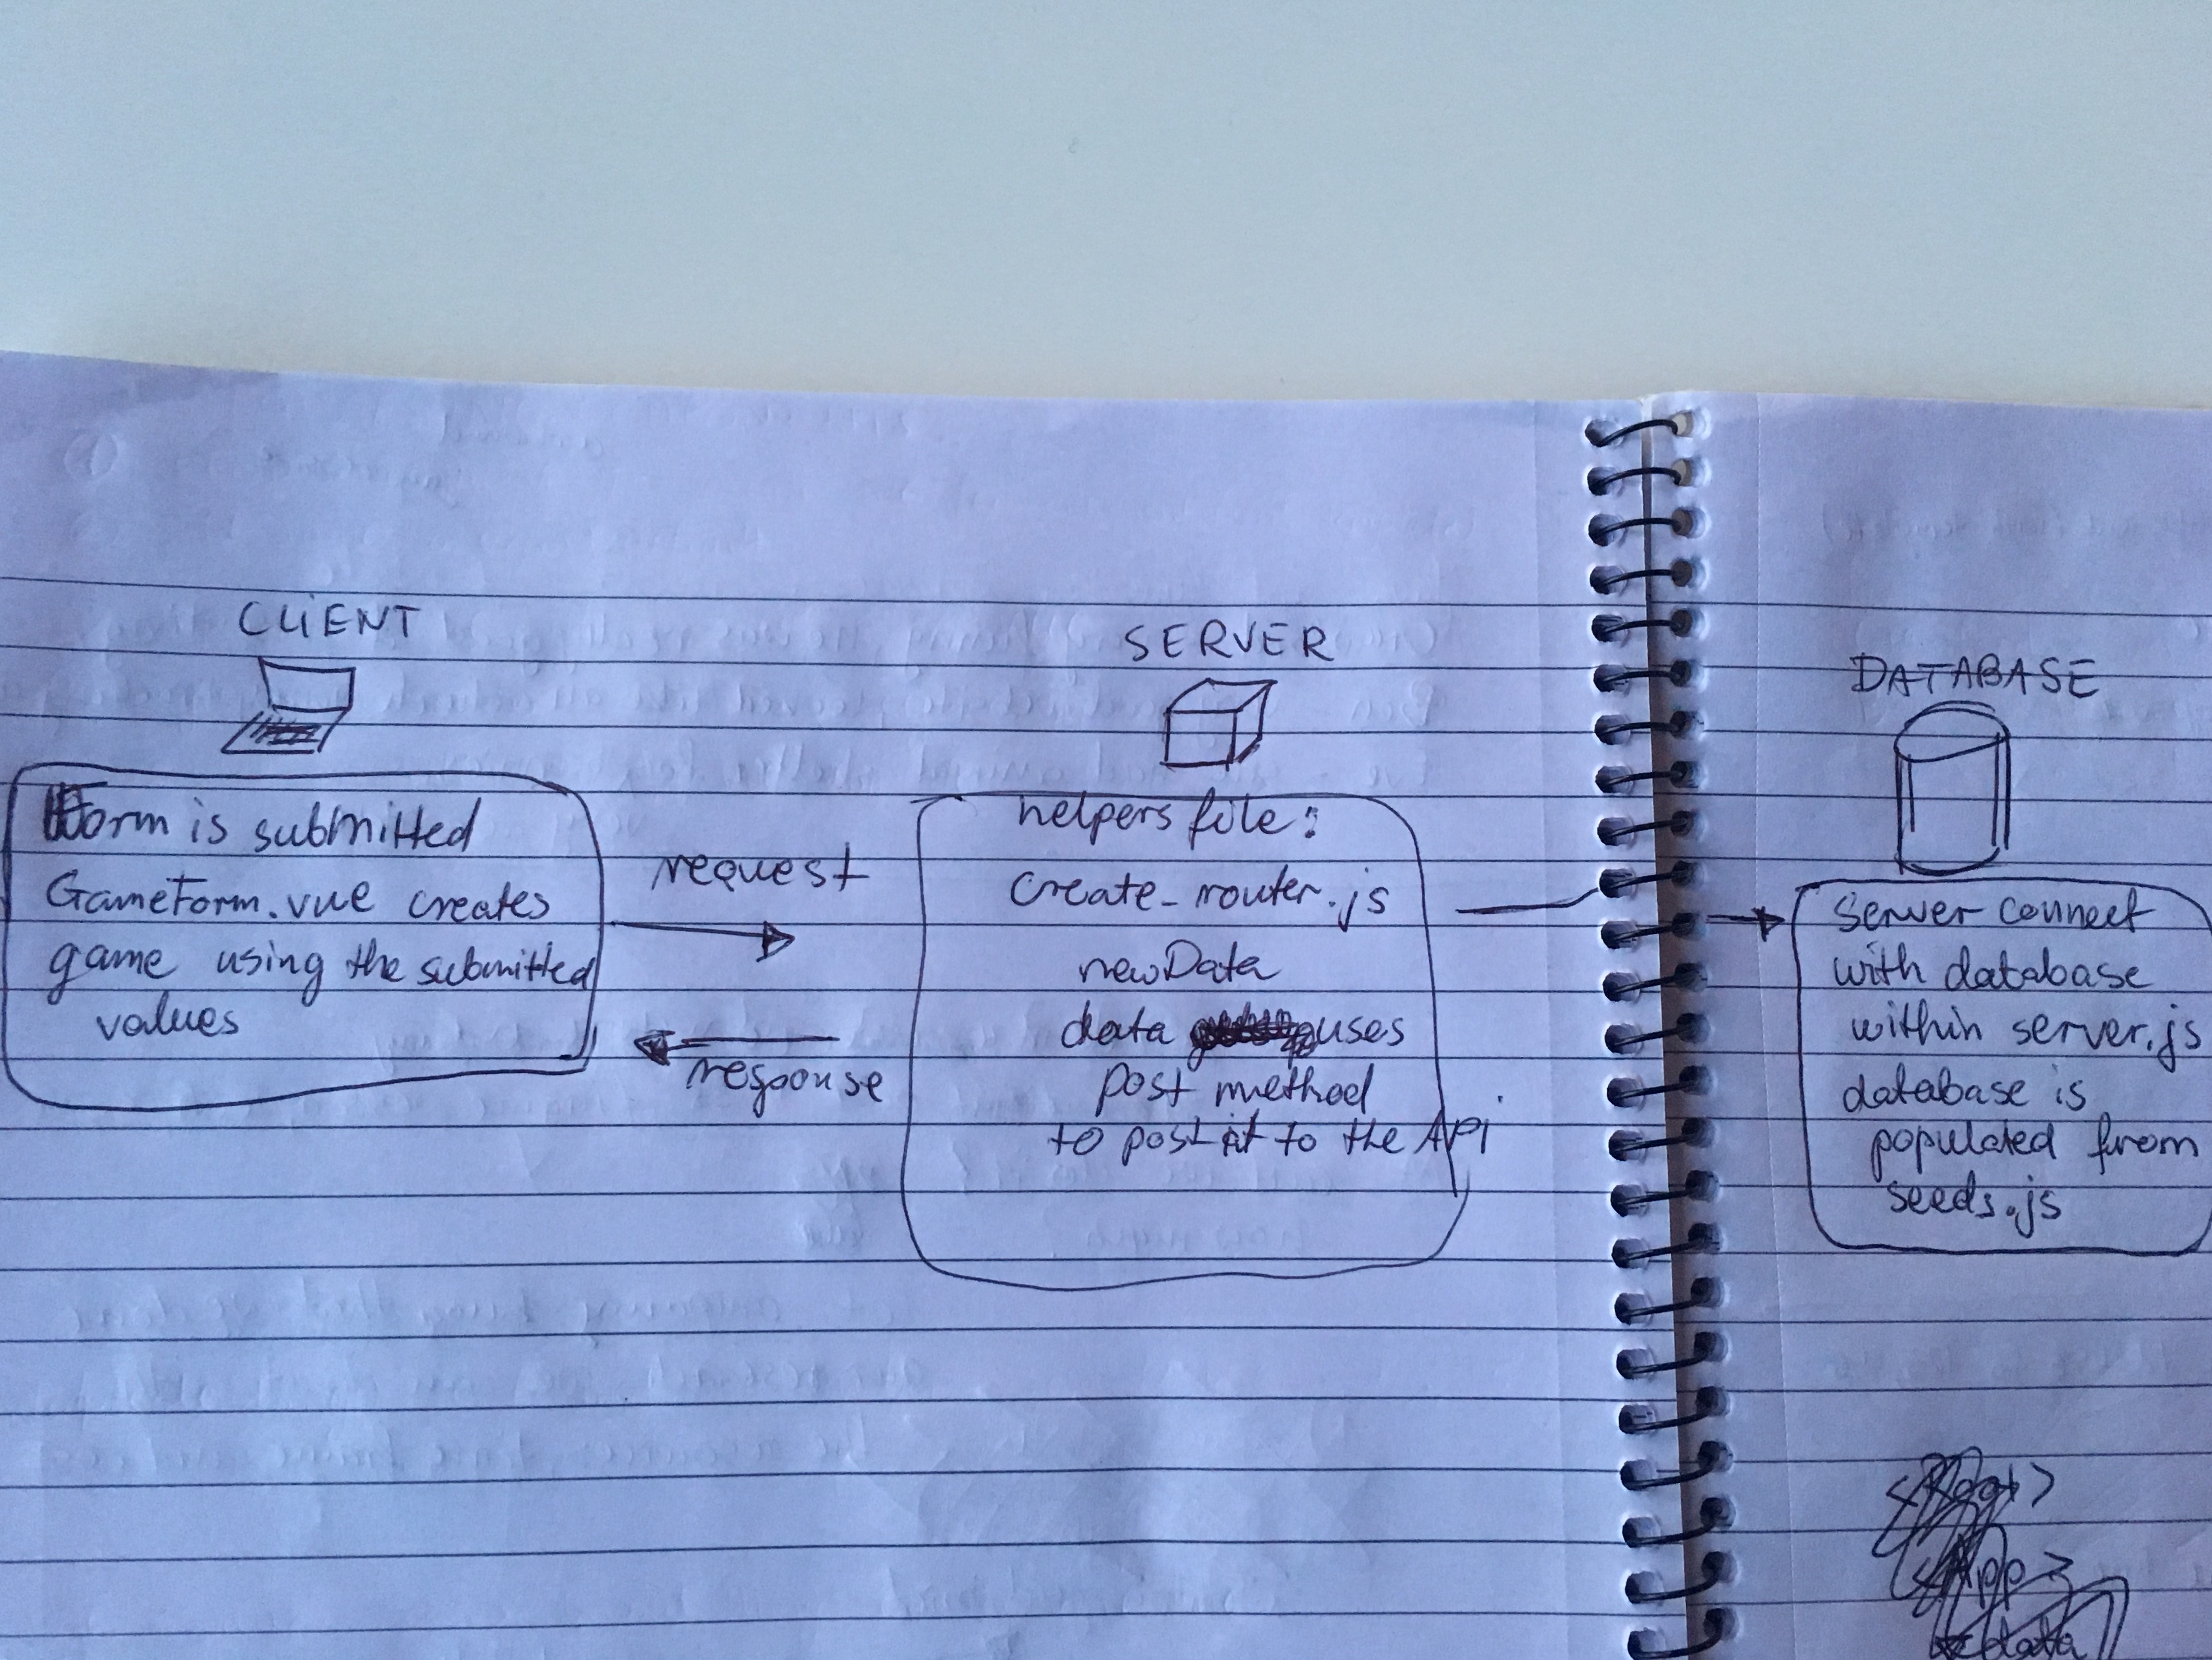 CLIENT
Form is submitted
GameForm.vue creates
game using the submitted
values
request
response
SERVER
helpers file:
create_router.js
newData
data uses
post method
to post it to the API
DATABASE
server connect
with database
within server.js
database is
populated from
seeds.js
App >
data